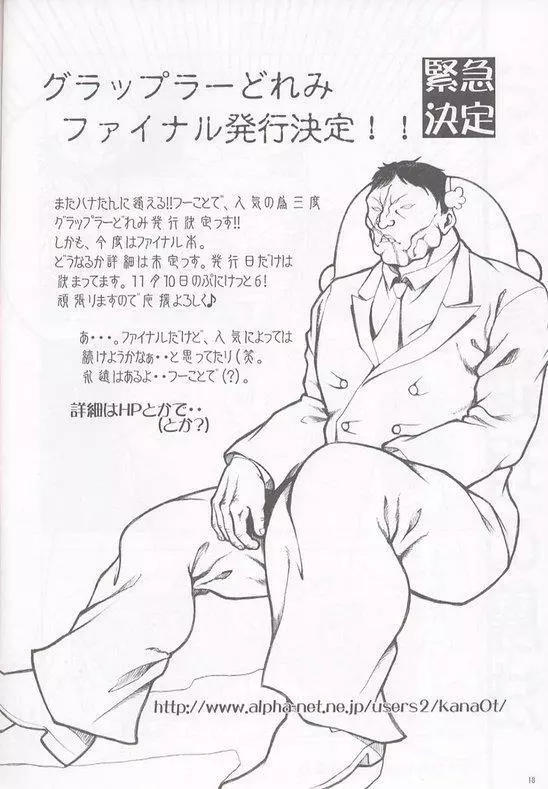 グラップラーどれみ
ファイナル発行決定！！
緊急
決定
またハナたんに逢える!!フーことで、人気の為三度
グラップラーどれみ発行決定っす!!
しかも、今度はファイナル本。
どうなるか詳細は未定っす。発行日だけは
決まってます。11月10日のぷにけっと6!
頑張りますので応援よろしく♪
あ・・・。ファイナルだけど、人気によっては
続けようかなぁ・・と思ってたり(笑。
永遠はあるよ・・フーことで(?)。
詳細はHPとかで・・
(とか?)
http://www.alpha-net.ne.jp/users2/kana0t/
18